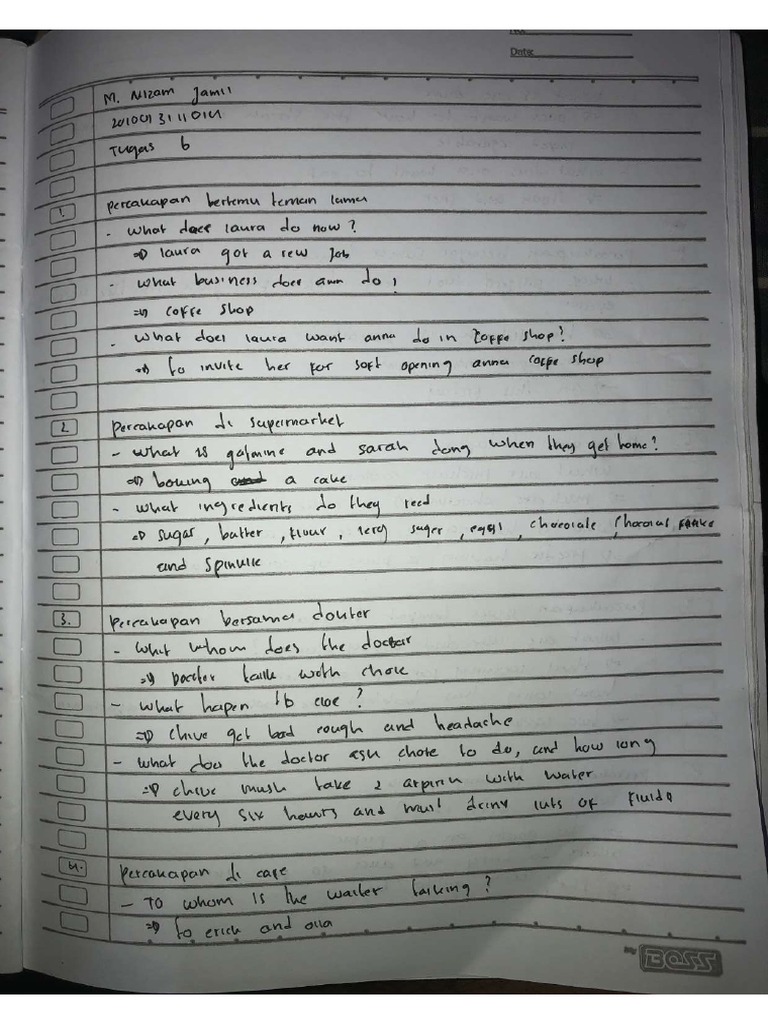 No.
Date:
M. Nizam Jamil
Tugas 6
1. percakapan bertemu teman lama
- what does laura do now?
⇒ laura got a new Job
- what business does ann do?
⇒ coffe shop
- what does laura want anna do in coffe shop?
⇒ to invite her for soft opening anna coffe shop
2. percakapan di supermarket
- what is and sarah doing when they get home?
⇒ a cake
- what ingredients do they need
⇒ sugar, butter, flour, suger, eggs, chocolate,
and
3. percakapan bersama dokter
- what whom does the doctor
⇒ with
- what hapen to cloe?
⇒ get bad cough and headache
- what does the doctor ask to do, and how long
⇒ take 2 with water
every six hours and must drink of fluids
4. percakapan di cafe
- To whom is the waiter talking?
⇒ to erick and
by BOSS